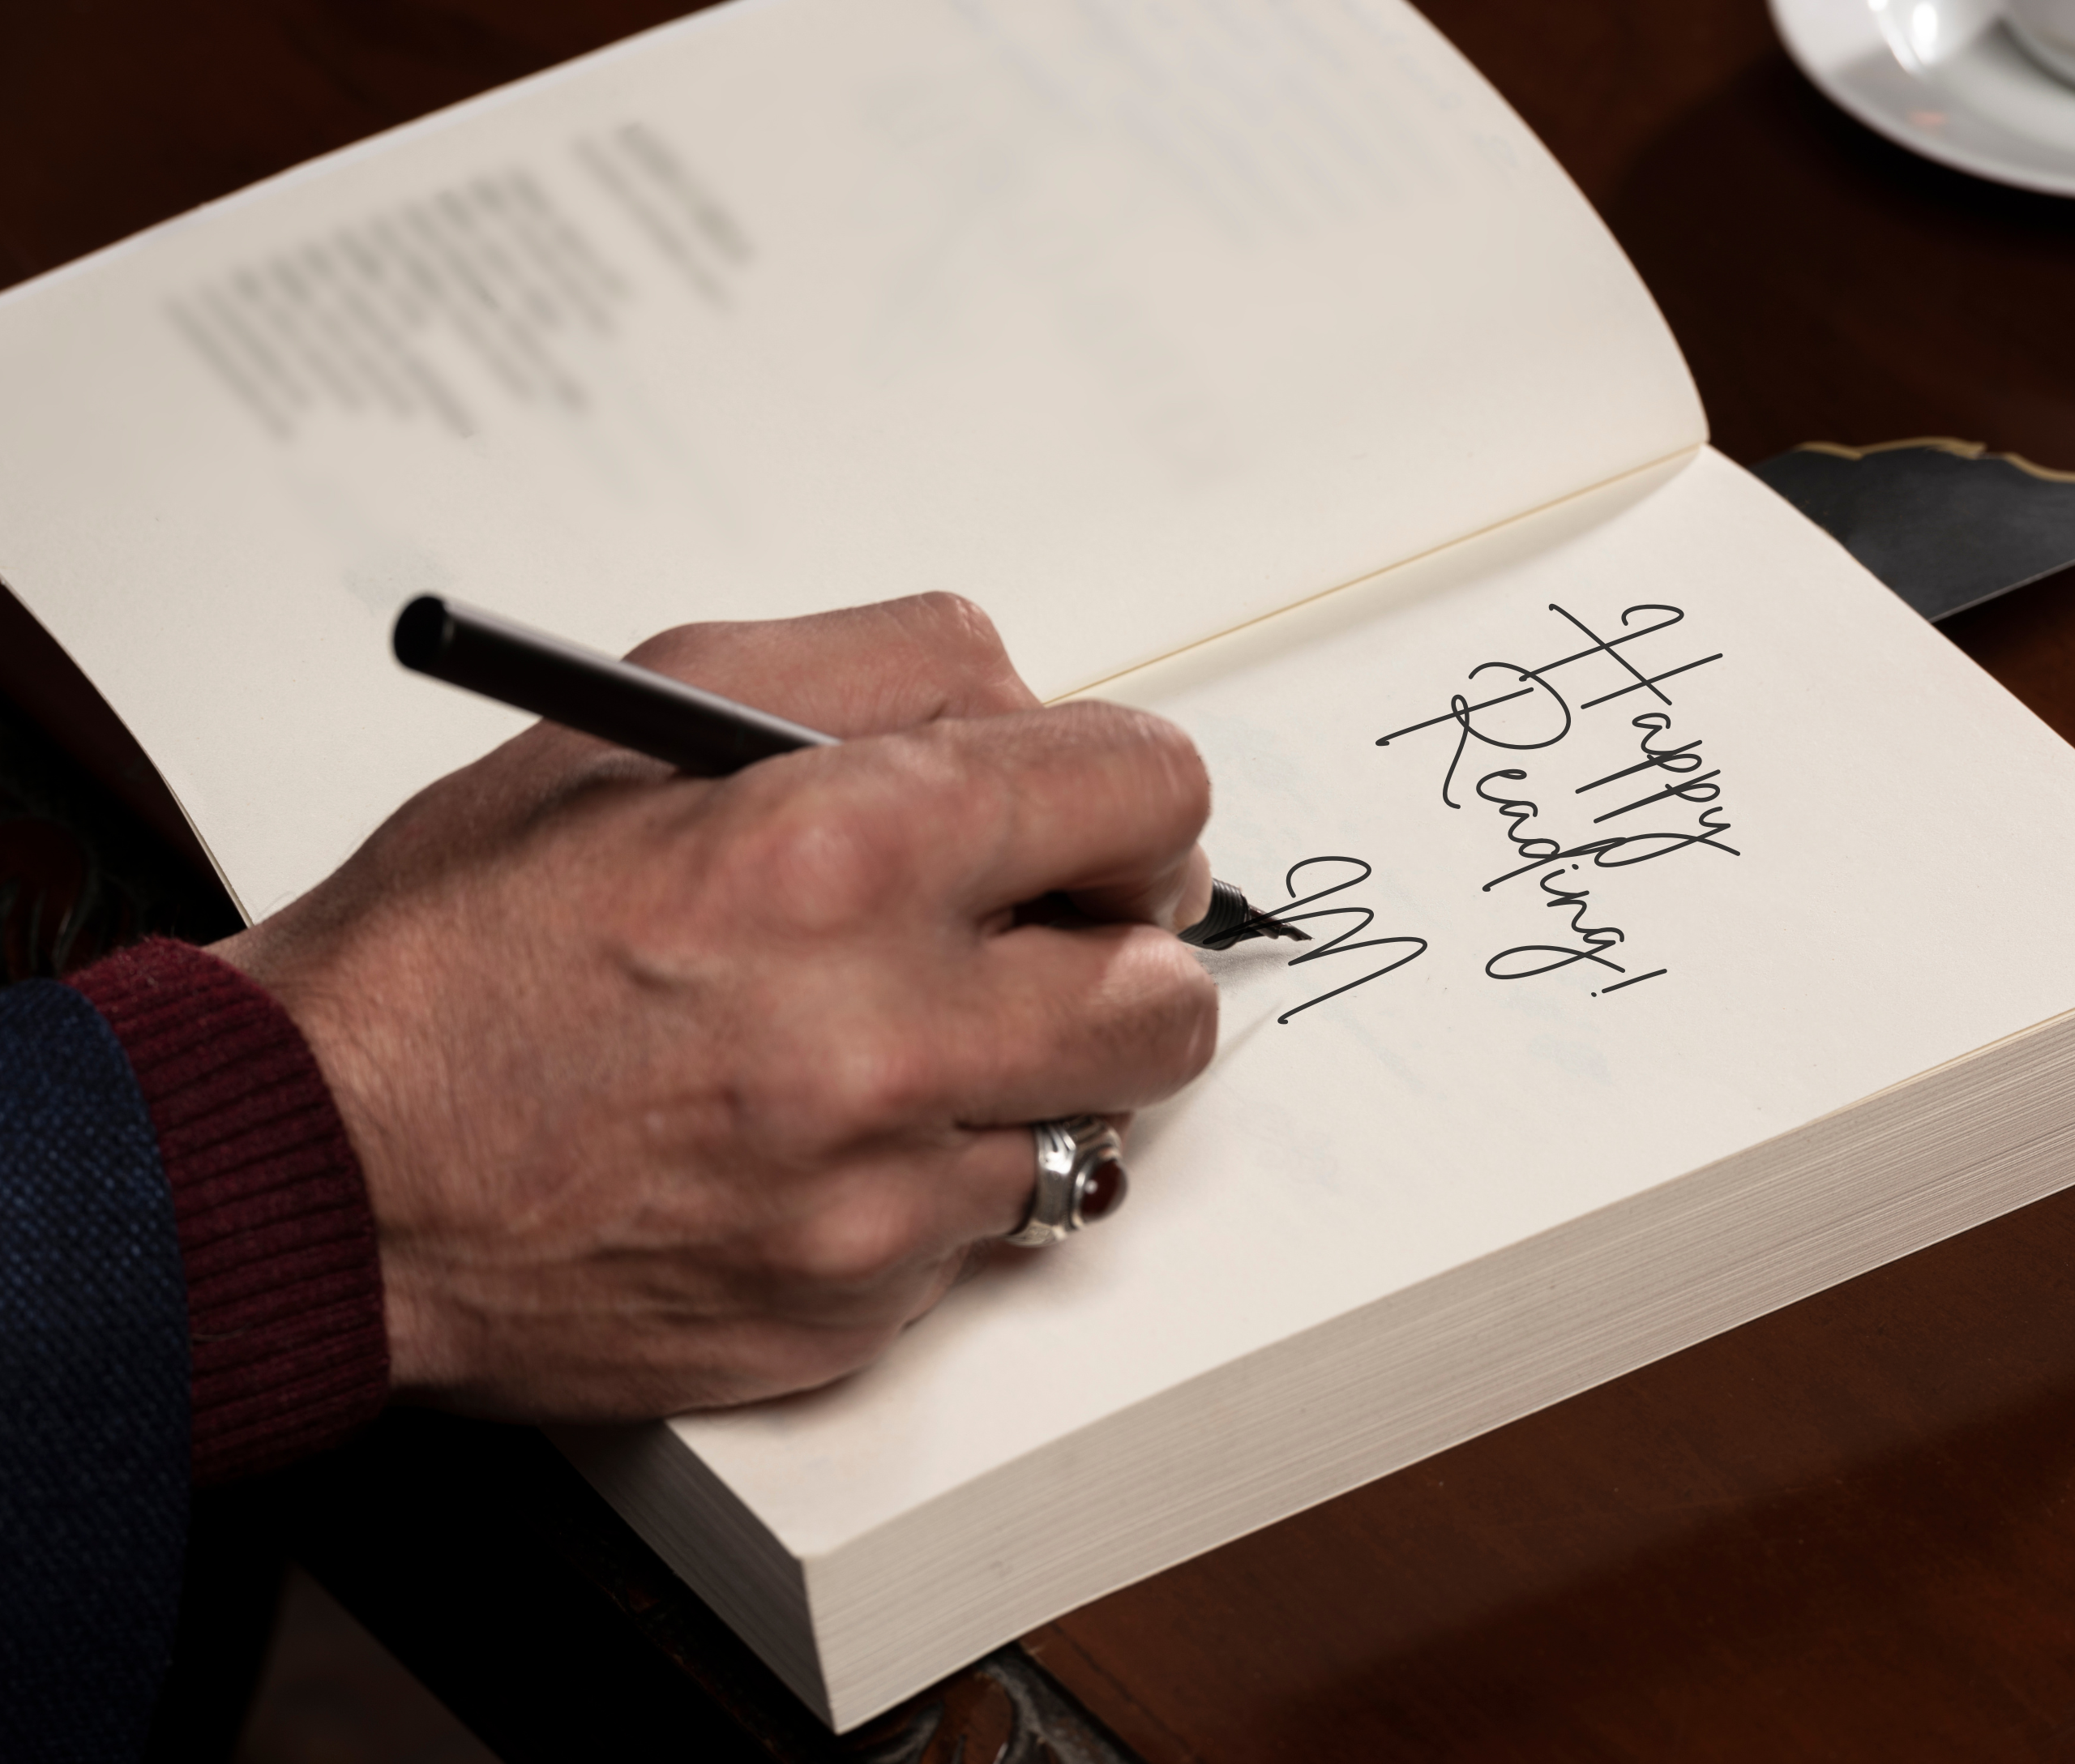 Happy
Reading!
M